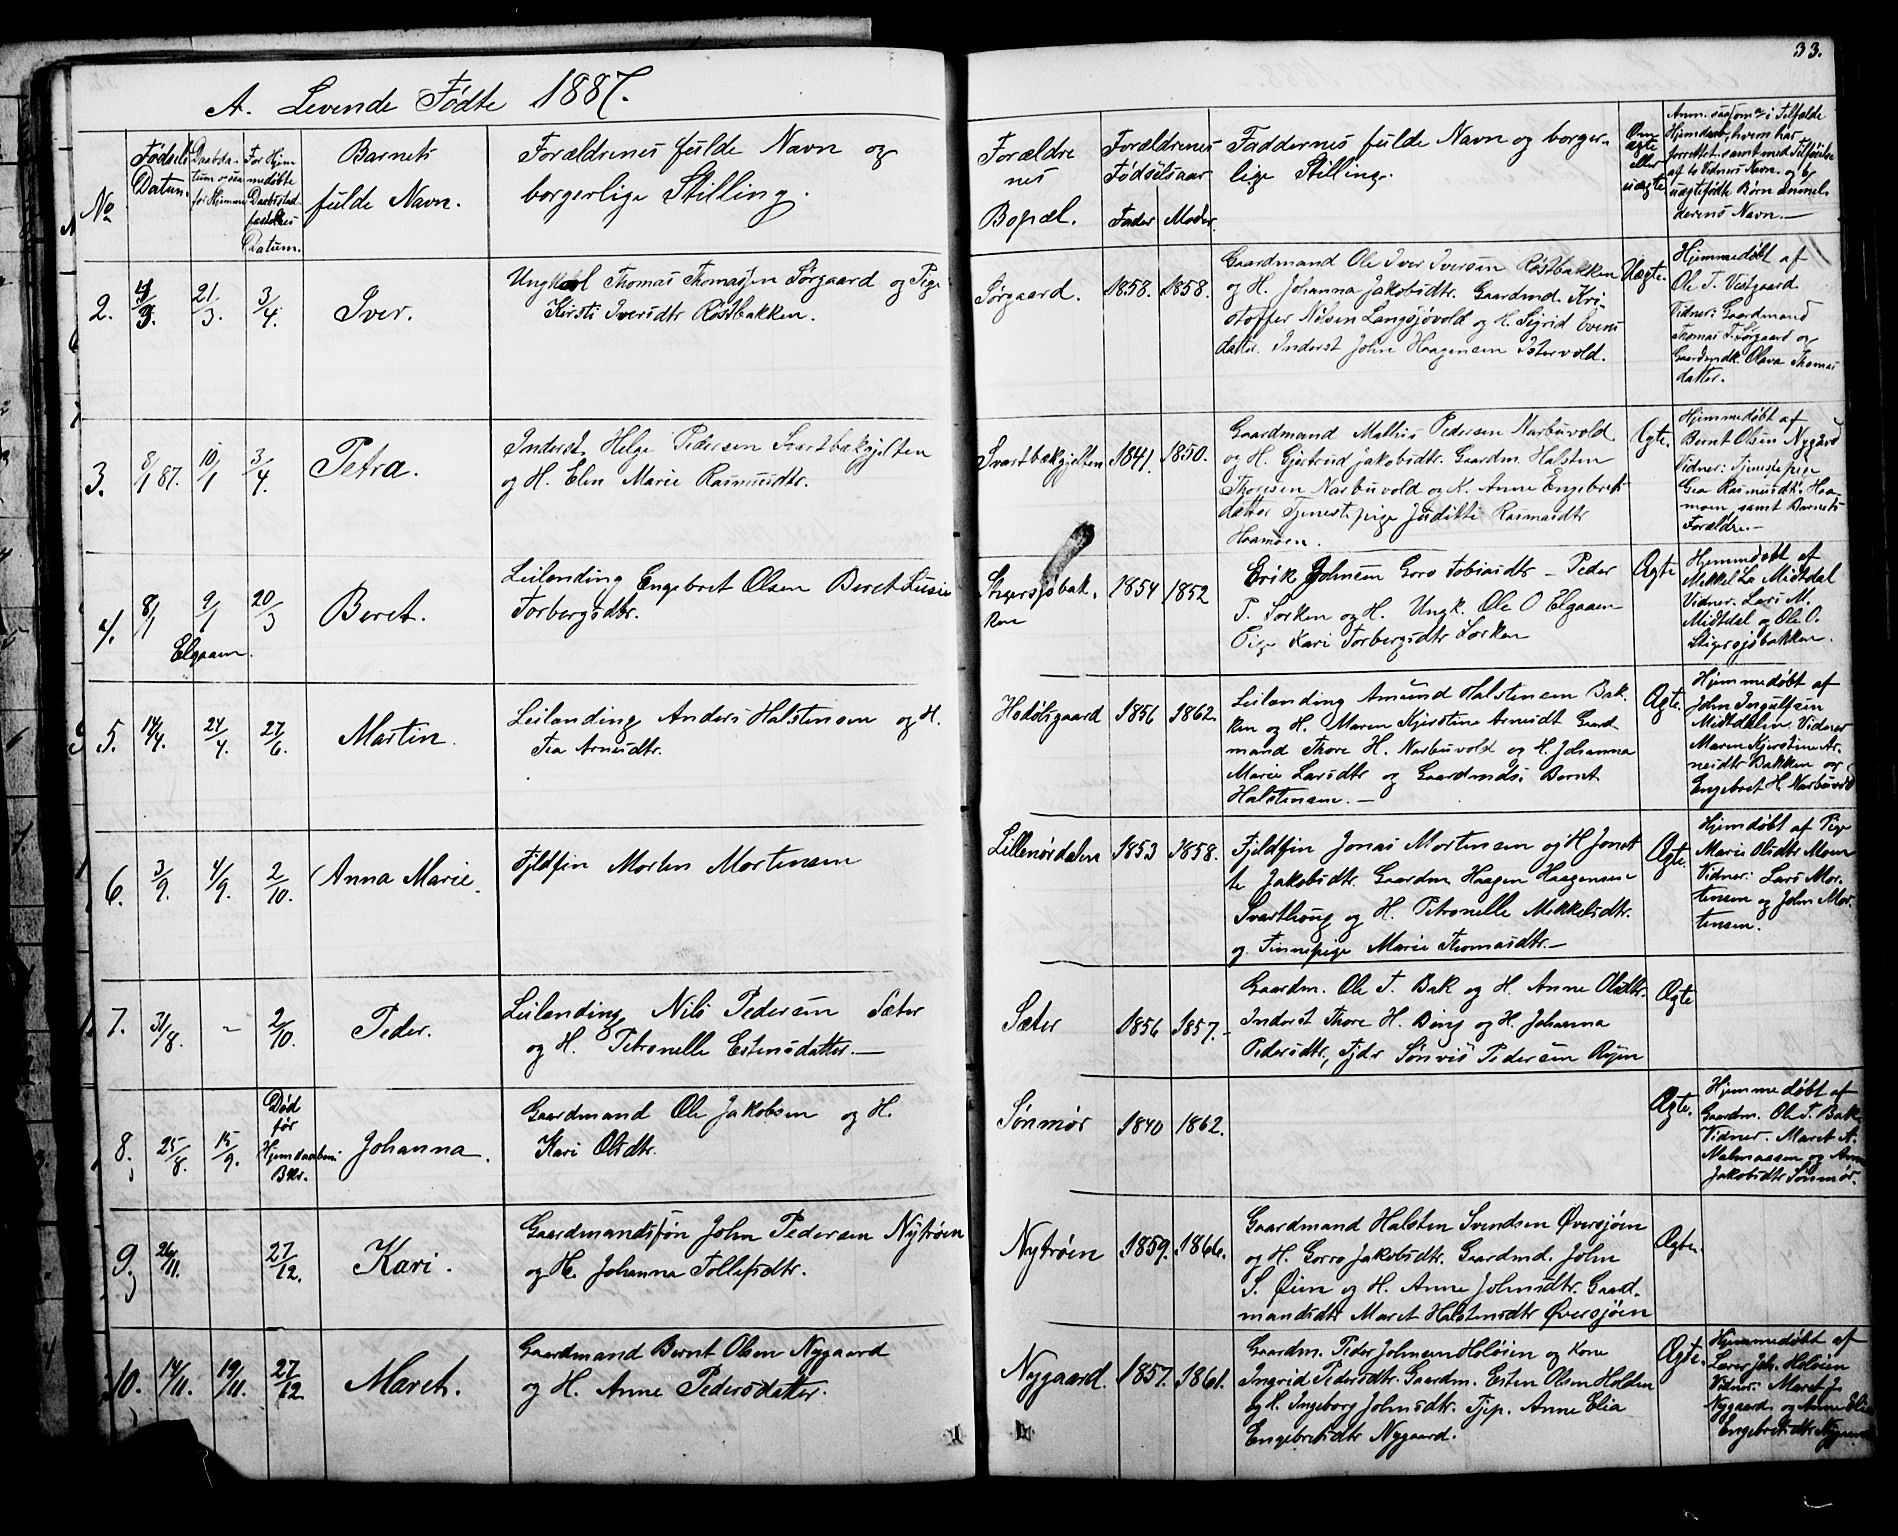 33.
A. Levende Fødte 1887.
No
Fødsels Datum.
Daabsdatum
for Hjemme
For Hjem
medøbte
Datum.
Barnets
fulde Navn.
Forældrenes fulde Navn og
borgerlige Stilling.
Forældre
nes
Bopæl.
Forældrenes
Fødselsaar
Fader Moder
Faddernes fulde Navn og borger-
lige Stilling.
Om
ægte
eller
uægte
Hjemdøbt, hvem har
forrettet samt med Tilføielse
af to Vidners Navn. og
uægtefødte Børn Anmel-
derens Navn.—
2. 4/3. 21/3. 3/4. Iver.
Ungkarl Thomas Thomassen Sørgaard og Pige
Kirsti Iversdtr Røstbakken.
Sørgaard. 1858. 1858.
Gaardmand Ole Iver Iversen Røstbakken
og H. Johanna Jakobsdtr. Gaardmd. Kri-
stoffer Nilsen Langsjøvold og H. Sigrid Evens
datter. Inderst John Haagensen Istervold.
Uægte.
Hjemmedøbt af
Ole T. Vestgaard
Vidner: Gaardmand
Thomas T. Sørgaard og
Gaardmdk. Olava Thomas
datter.
3. 8/1 87. 10/1 3/4. Petra.
Inderst Helge Pedersen Svartbakgjelten
og H. Elen Marie Rasmusdtr.
Svartbakgjelten 1841. 1850.
Gaardmand Mathis Pedersen Narbuvold
og H. Gjertrud Jakobsdtr. Gaardm. Halsten
Thoresen Narbuvold og K. Anne Engebrets
datter Tjenestepige Juditte Rasmusdtr
Haamoen.
Ægte.
Hjemmedøbt af
Bernt Olsen Nygaard
Vidner: Tjenestepige
Gea Rasmusdtr. Haa-
moen, samt Barnets
Forældre.—
4. 8/1 9/1 20/3 Beret.
Elgaaen.
Leilending Engebret Olsen Beret Lusie
Torbergsdtr.
Stigersjøbak-
ken 1854 1852
Erik Johnsen Goro Tobiasdtr — Peder
P. Sorken og H. Ungk. Ole O Elgaaen
Pige Kari Torbergsdtr Sorken
Ægte
Hjemmedøbt af
Mikkel La Midtdal
Vidner: Lars M.
Midtdal og Ole O.
Stigersjøbakken.
5. 14/4. 24/4. 27/6. Martin.
Leilending Anders Halstensen og H.
Tea Arnesdtr.
Hodølsgaard 1856 1862.
Leilending Amund Halstensen Bak-
ken og H. Maren Kjerstine Arnesdt Gaard
mand Thore H. Narbuvold og H. Johanna
Marie Larsdtr og Gaardmds. Bernt
Halstensen.—
Ægte.
Hjemmedøbt af
John Ingulfsen
Midtdalen Vidner
Maren Kjerstine Ar-
nesdtr Bakken og
Engebret H. Narbuvold
6. 3/9. 4/9. 2/10. Anna Marie.
Fjldfin Morten Mortensen
Lillenørdalen 1853 1858.
Fjeldfin Jonas Mortensen og H Jonet
te Jakobsdtr. Gaardm Haagen Haagensen
Svarthoug og H. Petronelle Mikkelsdtr.
og Finnepige Marie Thomasdtr.—
Ægte.
Hjemdøbt af Pige
Marie Olsdtr Moen
Vidner: Lars Mor-
tensen og John Mor-
tensen.
7. 31/8. - 2/10. Peder.
Leilending Nils Pedersen Sæter
og H. Petronelle Estensdatter.—
Sæter 1856 1857.-
Gaardm. Ole T. Bak og H. Anne Olsdtr.
Inderst Thore H. Bing og H. Johanna
Pedersdtr, Fjdr Sønvis Pedersen Øien
Ægte
8. 25/8. 15/9. Død
før
Bekr. Johanna.
Gaardmand Ole Jakobsen og H.
Kari Olsdtr.
Sønmør 1840 1862.
Ægte.
Hjemmedøbt af
Gaardm. Ole T. Bak
Vidner. Maret A.
Malmaasen og Anne
Jakobsdtr Sønmør.
9. 26/11. 27/12. Kari.
Gaardmandssøn John Pedersen Nytrøen
og H. Johanna Tollefsdtr.
Nytrøen 1859. 1866.
Gaardmand Halsten Svendsen Øversjøen
og H. Gorro Jakobsdtr. Gaardmd. John
S. Øien og H. Anne Johnsdtr. Gaard-
mandsdtr Maret Halstensdtr Øversjøen
Ægte.
10. 14/11. 19/11. 27/12 Maret.
Gaardmand Bernt Olsen Nygaard
og H. Anne Pedersdatter.
Nygaard. 1857. 1861.
Gaardm. Peder Johnsen Holøien og Kone
Ingrid Pedersdtr. Gaardm. Esten Olsen Holden
og H. Ingeborg Johnsdtr. Tjp. Anne Elia
Engebretsdtr Nygaard.
Ægte.
Hjemmedøbt af
Lærer Joh. Holøien
Vidner: Maret J.
Nygaard og Anne Elia
Engebretsdtr Nygaard